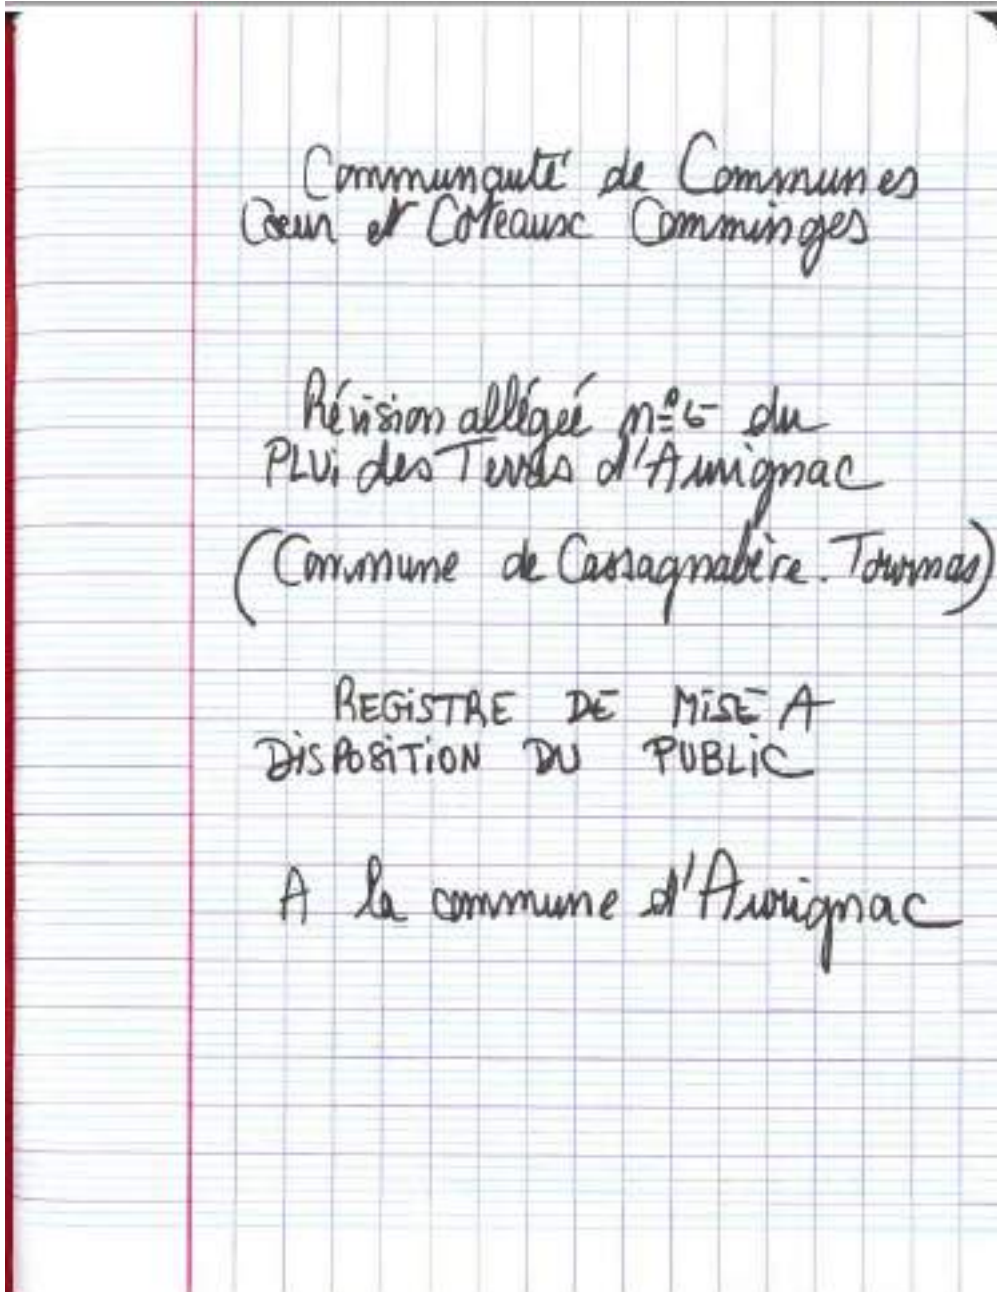 Communauté de Communes
Coeur et Coteaux Comminges
Révision allégée n°5 du
PLUi des Terres d'Aurignac
(Commune de Cassagnabère. Tournas)
REGISTRE DE MISE A
DISPOSITION DU PUBLIC
A la commune d'Aurignac